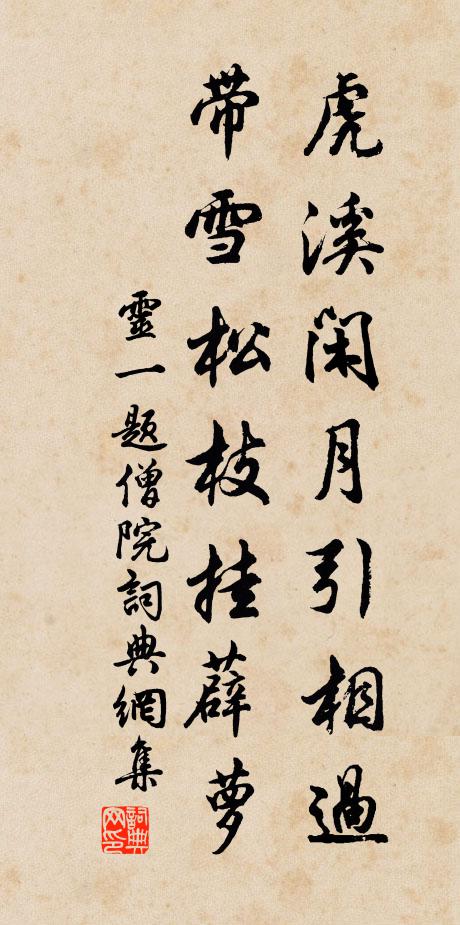 虎溪闲月引相過
带雪松枝挂薜萝
靈一題僧院詞典網集
詞典网印